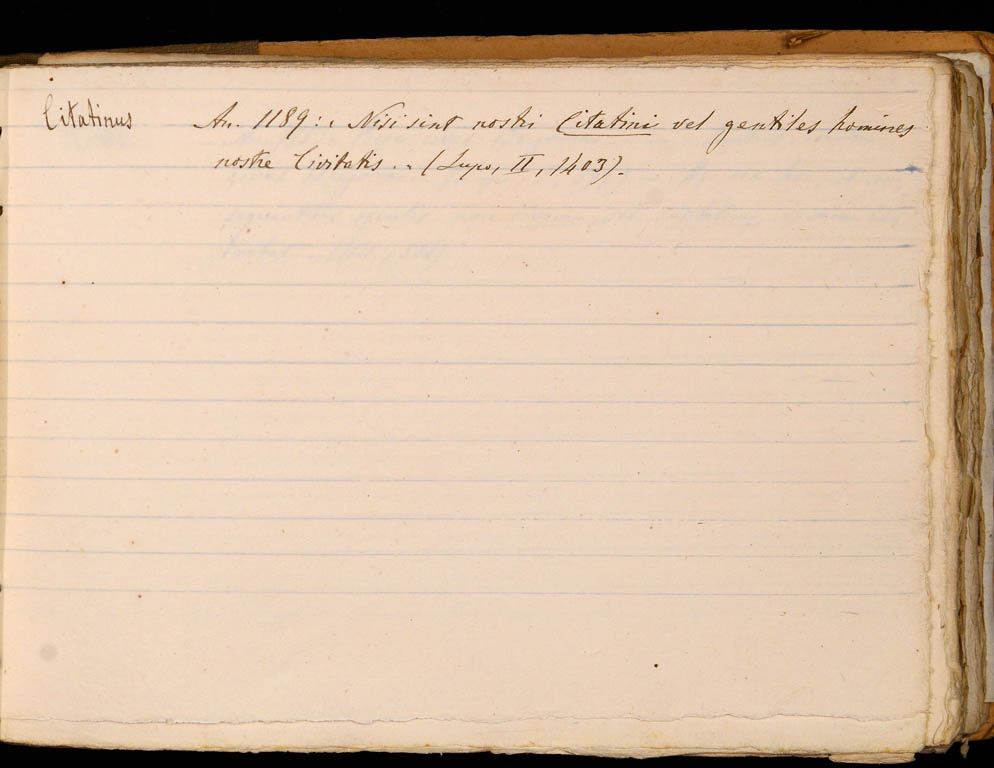 Citatinus An. 1189: . Nisi sint nostri Citatini vel gentiles homines
nostre Civitatis . . (Lupo, II, 1403).